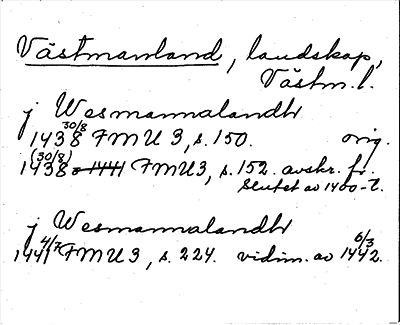 Västmanland, landskap,
Västm. l.
j Wesmannalandh
1438 30/8 FMU 3, s. 150. orig.
1438 (30/8) FMU3, s. 152. avskr. fr.
slutet av 1400-t.
j Wesmannalandh
1441 4/7 FMU 3, s. 224. vidim. av 1442. 6/3